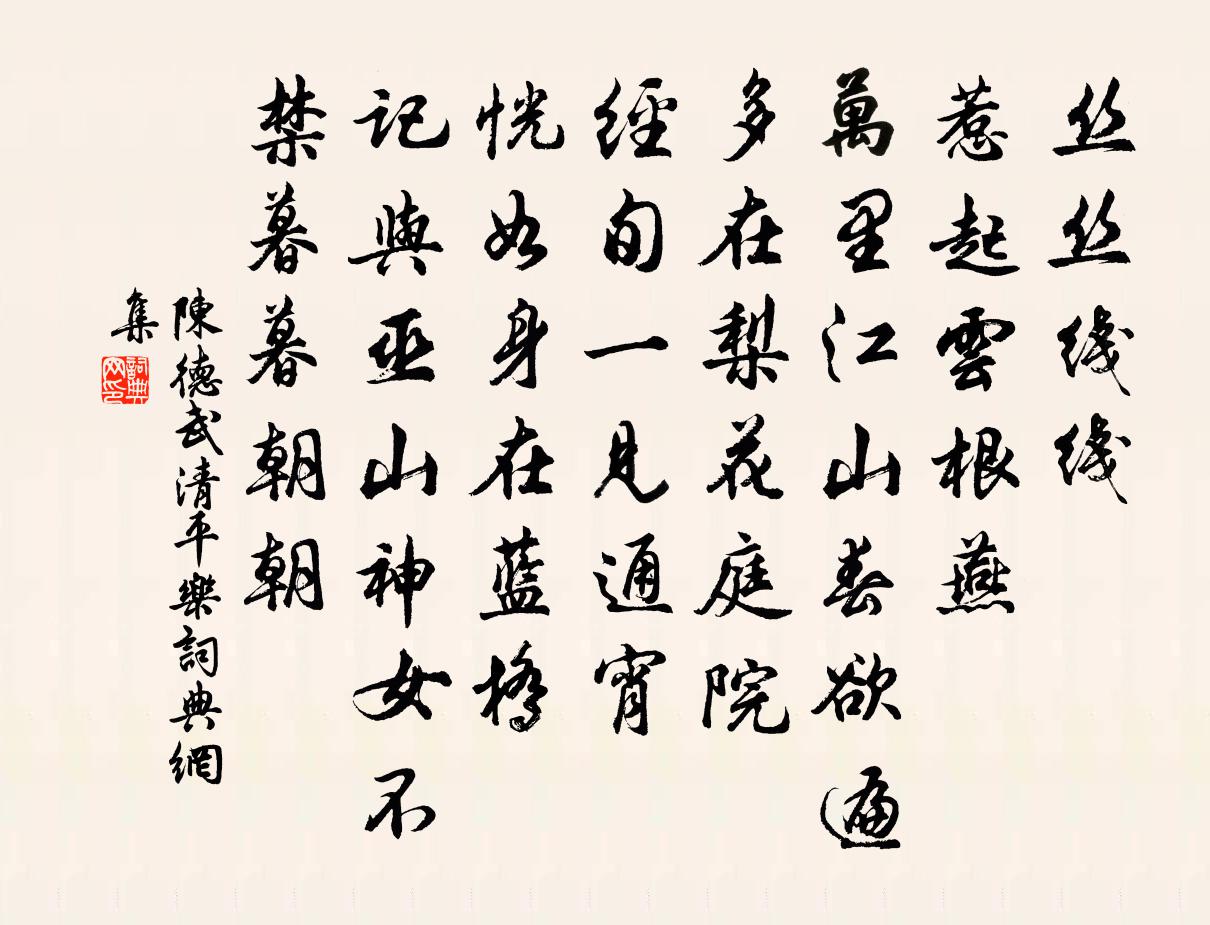 丝丝线线
惹起雲根燕
萬里江山春欲遍
多在梨花庭院
經旬一見通宵
恍如身在藍橋
記與巫山神女不
禁暮暮朝朝
陳德武清平樂詞典網
集
詞典網印